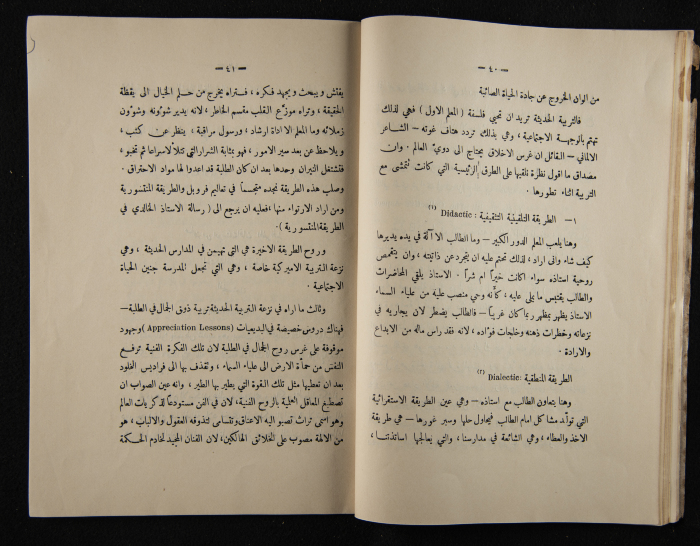 — ٤٠ —
من الوان الخروج عن جادة الحياة الصائبة
فالتربية الحديثة تريد ان تحيي فلسفة ( المعلم الاول ) فهي لذلك
تهتم بالوجهة الاجتماعية ، وهي بذلك تردد هتاف غوته — الشاعر
الالماني — القائل ان غرس الاخلاق يحتاج الى دويّ العالم . وان
مصداق ما اقول نظرة نلقيها على الطرق الرئيسية التي كانت تتمشى مع
التربية اثناء تطورها .
١ — الطريقة التلقينية التثقيفية : Didactic (١)
وهنا يلعب المعلم الدور الكبير — وما الطالب الا آلة في يده يديرها
كيف شاء وانى اراد ، لذلك تحتم عليه ان يتجرد عن ذاتيته ، وان يتقمص
روحية استاذه سواء اكانت خيراً ام شراً . الاستاذ يلقي المحاضرات
والطالب يقتبس ما يملى عليه ، كأنه وحي منصب عليه من علياء السماء
الاستاذ يظهر بمظهر ربما كان غريباً — فالطالب يضطر لان يجاريه في
نزعاته وخطرات ذهنه وخلجات فؤاده ، لانه فقد راس ماله من الابداع
والارادة .
الطريقة المنطقية : Dialectic (٢)
وهنا يتعاون الطالب مع استاذه — وهي عين الطريقة الاستقرائية
التي تولّد مشاكل امام الطالب فيحاول حلها وسبر غورها — هي طريقة
الاخذ والعطاء ، وهي الشائعة في مدارسنا ، والتي يعالجها اساتذتنا ،
— ٤١ —
يفتش ويبحث ويجهد فكره ، فتراه يخرج من حلم الخيال الى يقظة
الحقيقة ، وتراه موزّع القلب مقسم الخاطر ، لانه يدير شؤونه وشؤون
زملائه وما المعلم الا اداة ارشاد ، ورسول مراقبة ، ينظر عن كثب ،
ويلاحظ عن بعد سير الامور ، فهو بمثابة الشرار التي تتلألأ سراعا ثم تخبو ،
فتشتعل النيران وحدها بعد ان كان الطلبة قد اعدوا لها مواد الاحتراق .
وصلب هذه الطريقة نجده متجسماً في تعاليم فروبل والطريقة المنتسورية
ومن اراد الارتواء منها ، فعليه ان يرجع الى ( رسالة الاستاذ الخالدي في
الطريقة المنتسورية ) .
وروح الطريقة الاخيرة هي التي تهيمن في المدارس الحديثة ، وهي
نزعة التربية الاميركية خاصة ، وهي التي تجعل المدرسة جنين الحياة
الاجتماعية .
وثالث ما اراه في نزعة التربية الحديثة تربية ذوق الجمال في الطلبة —
فهناك دروس خصيصة في البديعيات (Appreciation Lessons) وجهود
موقوفة على غرس روح الجمال في الطلبة لان تلك الفكرة الفنية ترفع
النفس من حمأة الارض الى علياء السماء ، وتقذف بها الى فراديس الخلود
بعد ان تعطيها مثل تلك القوة التي يطير بها الطير ، وانه عين الصواب ان
تصطبغ المعاقل العلمية بالروح الفنية ، لان في الفن مستودعاً لذكريات العالم
وهو اسمى تراث تصبو اليه الاعناق وتتسامى لتذوقه العقول والالباب ، هو
من الآلهة مصبوب على الخلائق الهالكين ، لان الفنان المجيد لخادم الحكمة